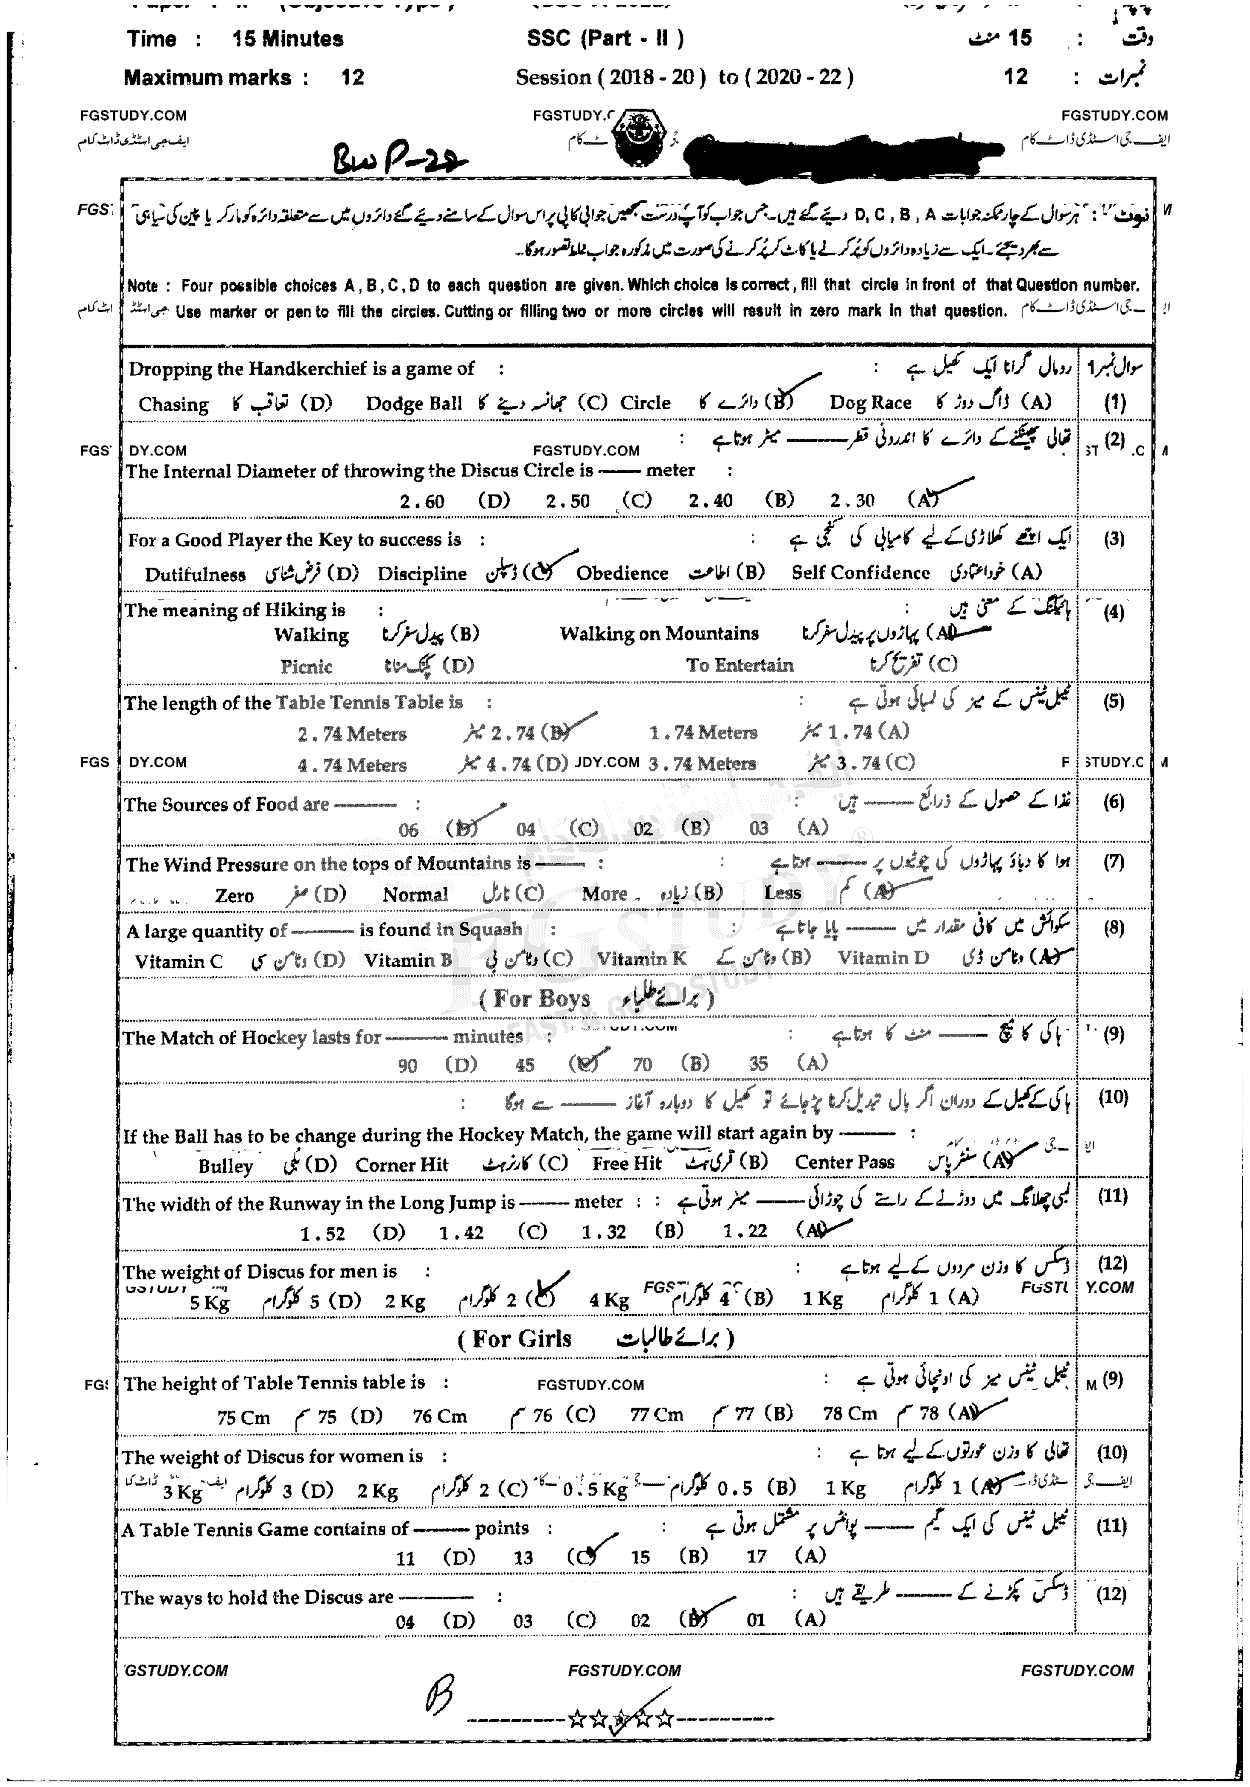 Time : 15 Minutes SSC (Part - II ) وقت : 15 منٹ
Maximum marks : 12 Session ( 2018 - 20 ) to ( 2020 - 22 ) نمبرات : 12
FGSTUDY.COM FGSTUDY.C FGSTUDY.COM
ایف جی اسٹڈی ڈاٹ کام ایف جی اسٹڈی ڈاٹ کام
BWP-22
نوٹ : ہر سوال کے چار ممکنہ جوابات D , C , B , A دیئے گئے ہیں۔ جس جواب کو آپ درست سمجھیں جوابی کاپی پر اس سوال کے سامنے دیئے گئے دائروں میں سے متعلقہ دائرہ کو مارکر یا پین کی سیاہی
سے بھر دیجئے۔ ایک سے زیادہ دائروں کو پُر کرنے یا کاٹ کر پُر کرنے کی صورت میں مذکورہ جواب غلط تصور ہوگا۔
Note : Four possible choices A , B , C , D to each question are given. Which choice is correct, fill that circle in front of that Question number.
Use marker or pen to fill the circles. Cutting or filling two or more circles will result in zero mark in that question.
Dropping the Handkerchief is a game of : رومال گرانا ایک کھیل ہے : سوال نمبر 1
Chasing تعاقب کا (D) Dodge Ball جھانسہ دینے کا (C) Circle دائرے کا (B) Dog Race ڈاگ دوڑ کا (A) (1)
تھالی پھینکنے کے دائرے کا اندرونی قطر ——— میٹر ہوتا ہے : (2)
DY.COM FGSTUDY.COM
The Internal Diameter of throwing the Discus Circle is —— meter :
2.60 (D) 2.50 (C) 2.40 (B) 2.30 (A)
For a Good Player the Key to success is : ایک اچھے کھلاڑی کے لیے کامیابی کی کنجی ہے : (3)
Dutifulness فرض شناسی (D) Discipline ڈسپلن (C) Obedience اطاعت (B) Self Confidence خود اعتمادی (A)
The meaning of Hiking is : ہائیکنگ کے معنی ہیں : (4)
Walking پیدل سفر کرنا (B) Walking on Mountains پہاڑوں پر پیدل سفر کرنا (A)
Picnic پکنک منانا (D) To Entertain تفریح کرنا (C)
The length of the Table Tennis Table is : ٹیبل ٹینس کے میز کی لمبائی ہوتی ہے : (5)
2.74 Meters 2.74 میٹر (B) 1.74 Meters 1.74 میٹر (A)
4.74 Meters 4.74 میٹر (D) 3.74 Meters 3.74 میٹر (C)
The Sources of Food are ——— : غذا کے حصول کے ذرائع ——— ہیں : (6)
06 (D) 04 (C) 02 (B) 03 (A)
The Wind Pressure on the tops of Mountains is —— : ہوا کا دباؤ پہاڑوں کی چوٹیوں پر ——— ہوتا ہے : (7)
Zero صفر (D) Normal نارمل (C) More زیادہ (B) Less کم (A)
A large quantity of ——— is found in Squash : سکوائش میں کافی مقدار میں ——— پایا جاتا ہے : (8)
Vitamin C وٹامن سی (D) Vitamin B وٹامن بی (C) Vitamin K وٹامن کے (B) Vitamin D وٹامن ڈی (A)
( For Boys برائے طلباء )
The Match of Hockey lasts for ——— minutes : ہاکی کا میچ ——— منٹ کا ہوتا ہے : (9)
90 (D) 45 (C) 70 (B) 35 (A)
ہاکی کے کھیل کے دوران اگر بال تبدیل کرنا پڑ جائے تو کھیل کا دوبارہ آغاز ——— سے ہوگا : (10)
If the Ball has to be change during the Hockey Match, the game will start again by ——— :
Bulley بلی (D) Corner Hit کارنر ہٹ (C) Free Hit فری ہٹ (B) Center Pass سنٹر پاس (A)
The width of the Runway in the Long Jump is —— meter : لمبی چھلانگ میں دوڑنے کے راستے کی چوڑائی ——— میٹر ہوتی ہے : (11)
1.52 (D) 1.42 (C) 1.32 (B) 1.22 (A)
The weight of Discus for men is : ڈسکس کا وزن مردوں کے لیے ہوتا ہے : (12)
5 Kg 5 کلوگرام (D) 2 Kg 2 کلوگرام (C) 4 Kg 4 کلوگرام (B) 1 Kg 1 کلوگرام (A)
( For Girls برائے طالبات )
The height of Table Tennis table is : FGSTUDY.COM ٹیبل ٹینس میز کی اونچائی ہوتی ہے : (9)
75 Cm 75 سم (D) 76 Cm 76 سم (C) 77 Cm 77 سم (B) 78 Cm 78 سم (A)
The weight of Discus for women is : تھالی کا وزن عورتوں کے لیے ہوتا ہے : (10)
3 Kg 3 کلوگرام (D) 2 Kg 2 کلوگرام (C) 0.5 Kg 0.5 کلوگرام (B) 1 Kg 1 کلوگرام (A)
A Table Tennis Game contains of ——— points : ٹیبل ٹینس کی ایک گیم ——— پوائنٹس پر مشتمل ہوتی ہے : (11)
11 (D) 13 (C) 15 (B) 17 (A)
The ways to hold the Discus are ——— : ڈسکس پکڑنے کے ——— طریقے ہیں : (12)
04 (D) 03 (C) 02 (B) 01 (A)
GSTUDY.COM FGSTUDY.COM FGSTUDY.COM
B